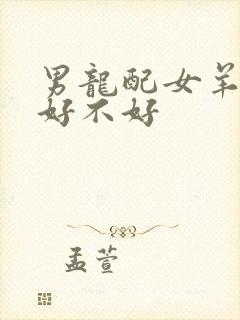 男龍配女羊
好不好
孟萱